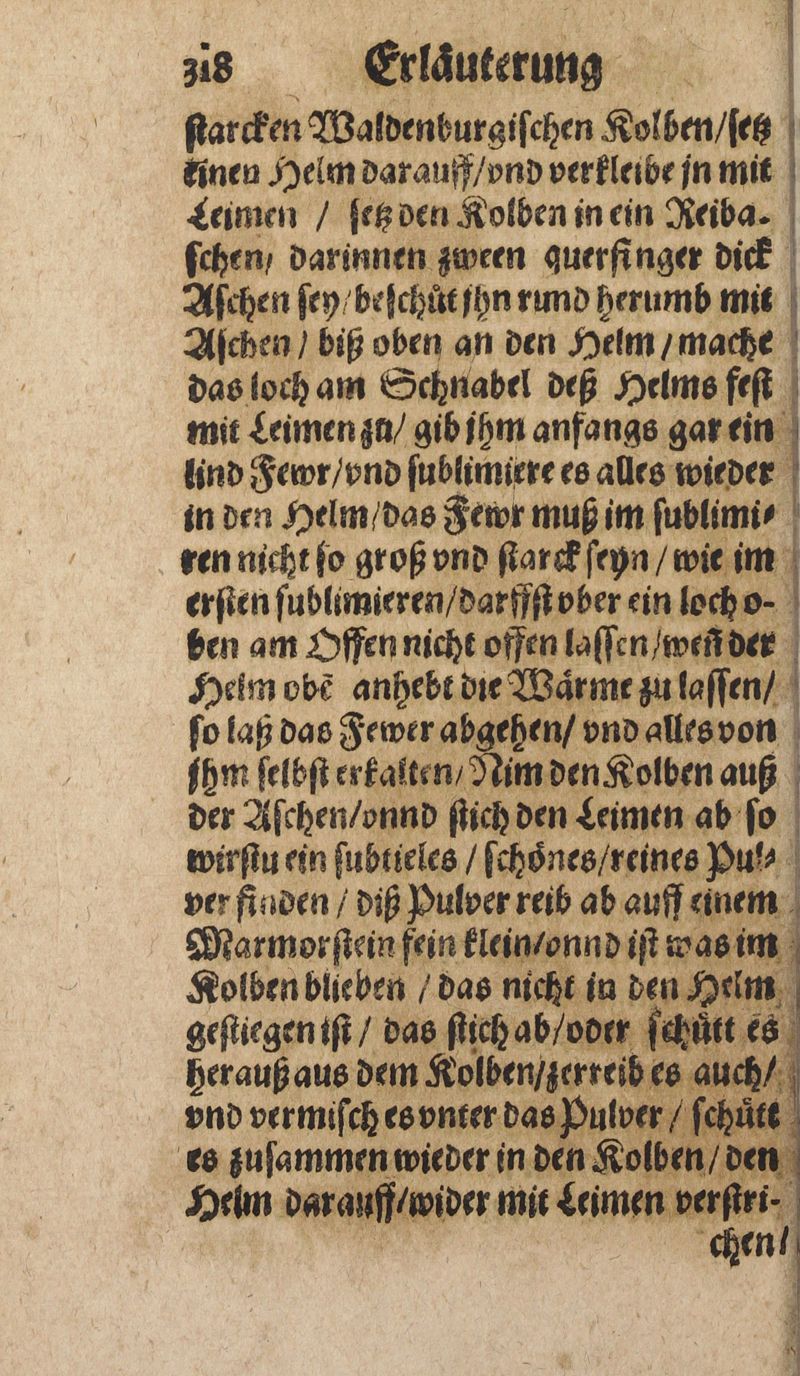 318 Erläuterung
starcken Waldenburgischen Kolben/setz
einen Helm darauff/vnd verkleibe jn mit
Leimen / setz den Kolben in ein Reiba-
schen/ darinnen zween querfinger dick
Aschen sey/beschüt jhn rund herumb mit
Aschen / biß oben an den Helm / mache
das loch am Schnabel deß Helms fest
mit Leimen zu/ gib jhm anfangs gar ein
lind Fewr/vnd sublimiere es alles wieder
in den Helm/das Fewr muß im sublimi-
ren nicht so groß vnd starck seyn / wie im
ersten sublimieren/darffst vber ein loch o-
ben am Offen nicht offen lassen/weñ der
Helm obẽ anhebt die Wärme zu lassen/
so laß das Fewer abgehen/ vnd alles von
jhm selbst erkalten/ Nim den Kolben auß
der Aschen/vnnd stich den Leimen ab so
wirstu ein subtieles / schönes/reines Pul-
ver finden / diß Pulver reib ab auff einem
Marmorstein fein klein/vnnd ist was im
Kolben blieben / das nicht in den Helm
gestiegen ist / das stich ab/oder schütt es
herauß aus dem Kolben/zerreib es auch/
vnd vermisch es vnter das Pulver / schütt
es zusammen wieder in den Kolben/den
Helm darauff/wider mit Leimen verstri-
chen/